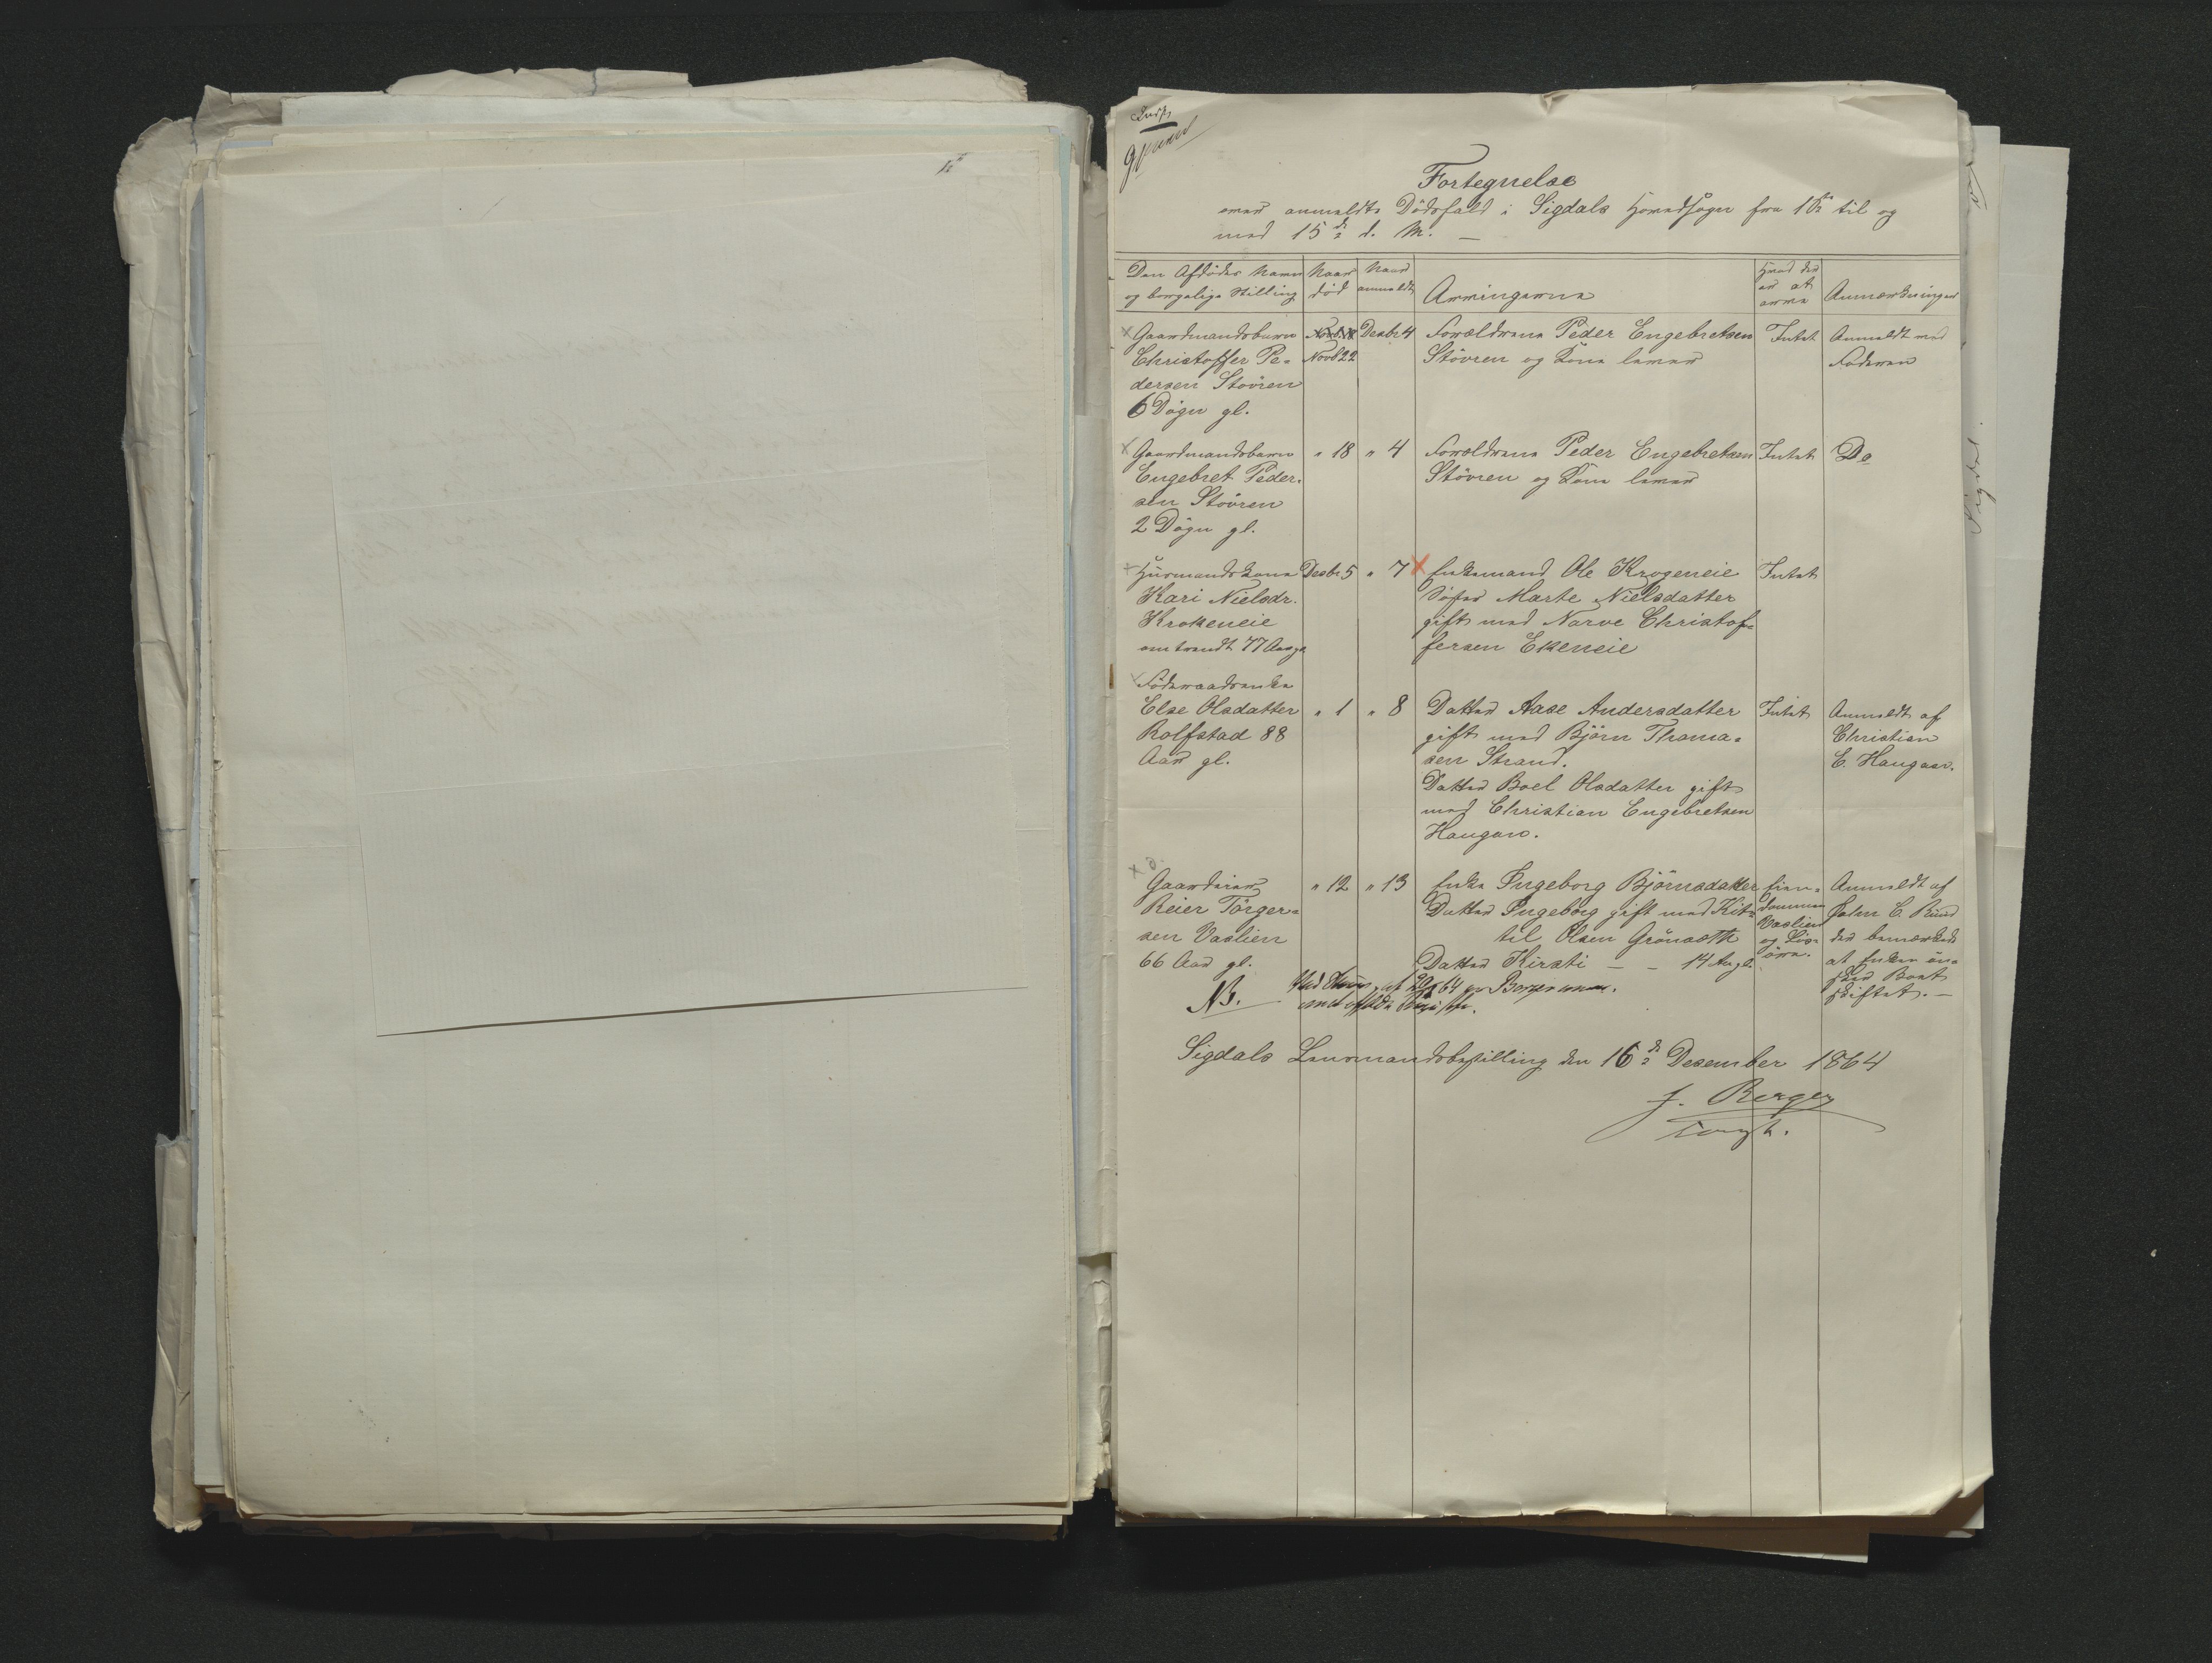 Fortegnelse
over anmeldte Dödsfald i Sigdals Hovedsogn fra 1ste til og
med 15de d. M. —
Den Afdödes Navn
og borgelige Stilling
Naar
död
Naar
anmeldt
Arvingerne
Hvad der
er at
arve
Anmærkninger
Gaardmandsbarn
Christoffer Pe-
dersen Stövren
6 Dögn gl.
Novb 22
Desbr 4
Forældrene Peder Engebretsen
Stövren og Kone lever
Intet
Anmeldt ved
Faderen
Gaardmandsbarn
Engebret Peder-
sen Stövren
2 Dögn gl.
" 18
" 4
Forældrene Peder Engebretsen
Stövren og Kone lever
Intet
Do
Huusmandskone
Kari Nielsdr.
Krokeneie
omtrendt 77 Aar gl
Desbr 5
" 7
Enkemand Ole Krogeneie
Söster Marte Nielsdatter
gift med Narve Christof-
fersen Ekeneie
Intet
Föderaadsenke
Else Olsdatter
Rolfstad 88
Aar gl.
" 1
" 8
Datter Aase Andersdatter
gift med Björn Thoma-
sen Strand.
Datter Boel Olsdatter gift
med Christian Engebretsen
Haugan.
Intet
Anmeldt af
Christian
E. Haugan.
Gaardeier
Reier Törger-
sen Vaslien
66 Aar gl.
" 12
" 13
Enke Ingeborg Björnsdatter
Datter Ingeborg gift med Kit-
til Olsen Grönseth
Datter Kirsti — — 14 Aar gl.
Eien-
dommen
Vaslien
og Lös-
öre.
Anmeldt af
John E. Ruud
der bemærkede
at Enken ön-
sker Boet
skiftet. —
NB.
Sigdals Lensmandsbestilling den 16de Desember 1864
J. Berger